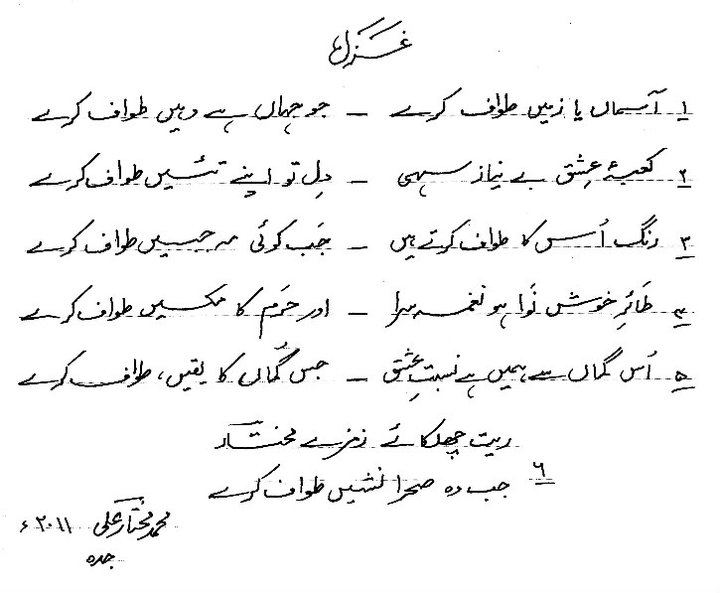 غزل
۱ آسماں یا زمیں طواف کرے – جو جہاں ہے وہیں طواف کرے
۲ کعبۂ عِشق بے نیاز سہی – دِل تو اپنے تئیں طواف کرے
۳ رنگ اُس کا طواف کرتے ہیں – جَب کوئی مہ جبیں طواف کرے
۴ طائرِ خوش نَوا ہو نغمہ سرا – اور حَرَم کا مکیں طواف کرے
۵ اُس گماں سے ہمیں ہے نسبتِ عشق – جس گُماں کا یقیں، طواف کرے
ریت چھلکائے زمزمے مختار
۶ جب وہ صحرا نشیں طواف کرے
محمد مُختار علی ۲۰۱۱ء
جدہ